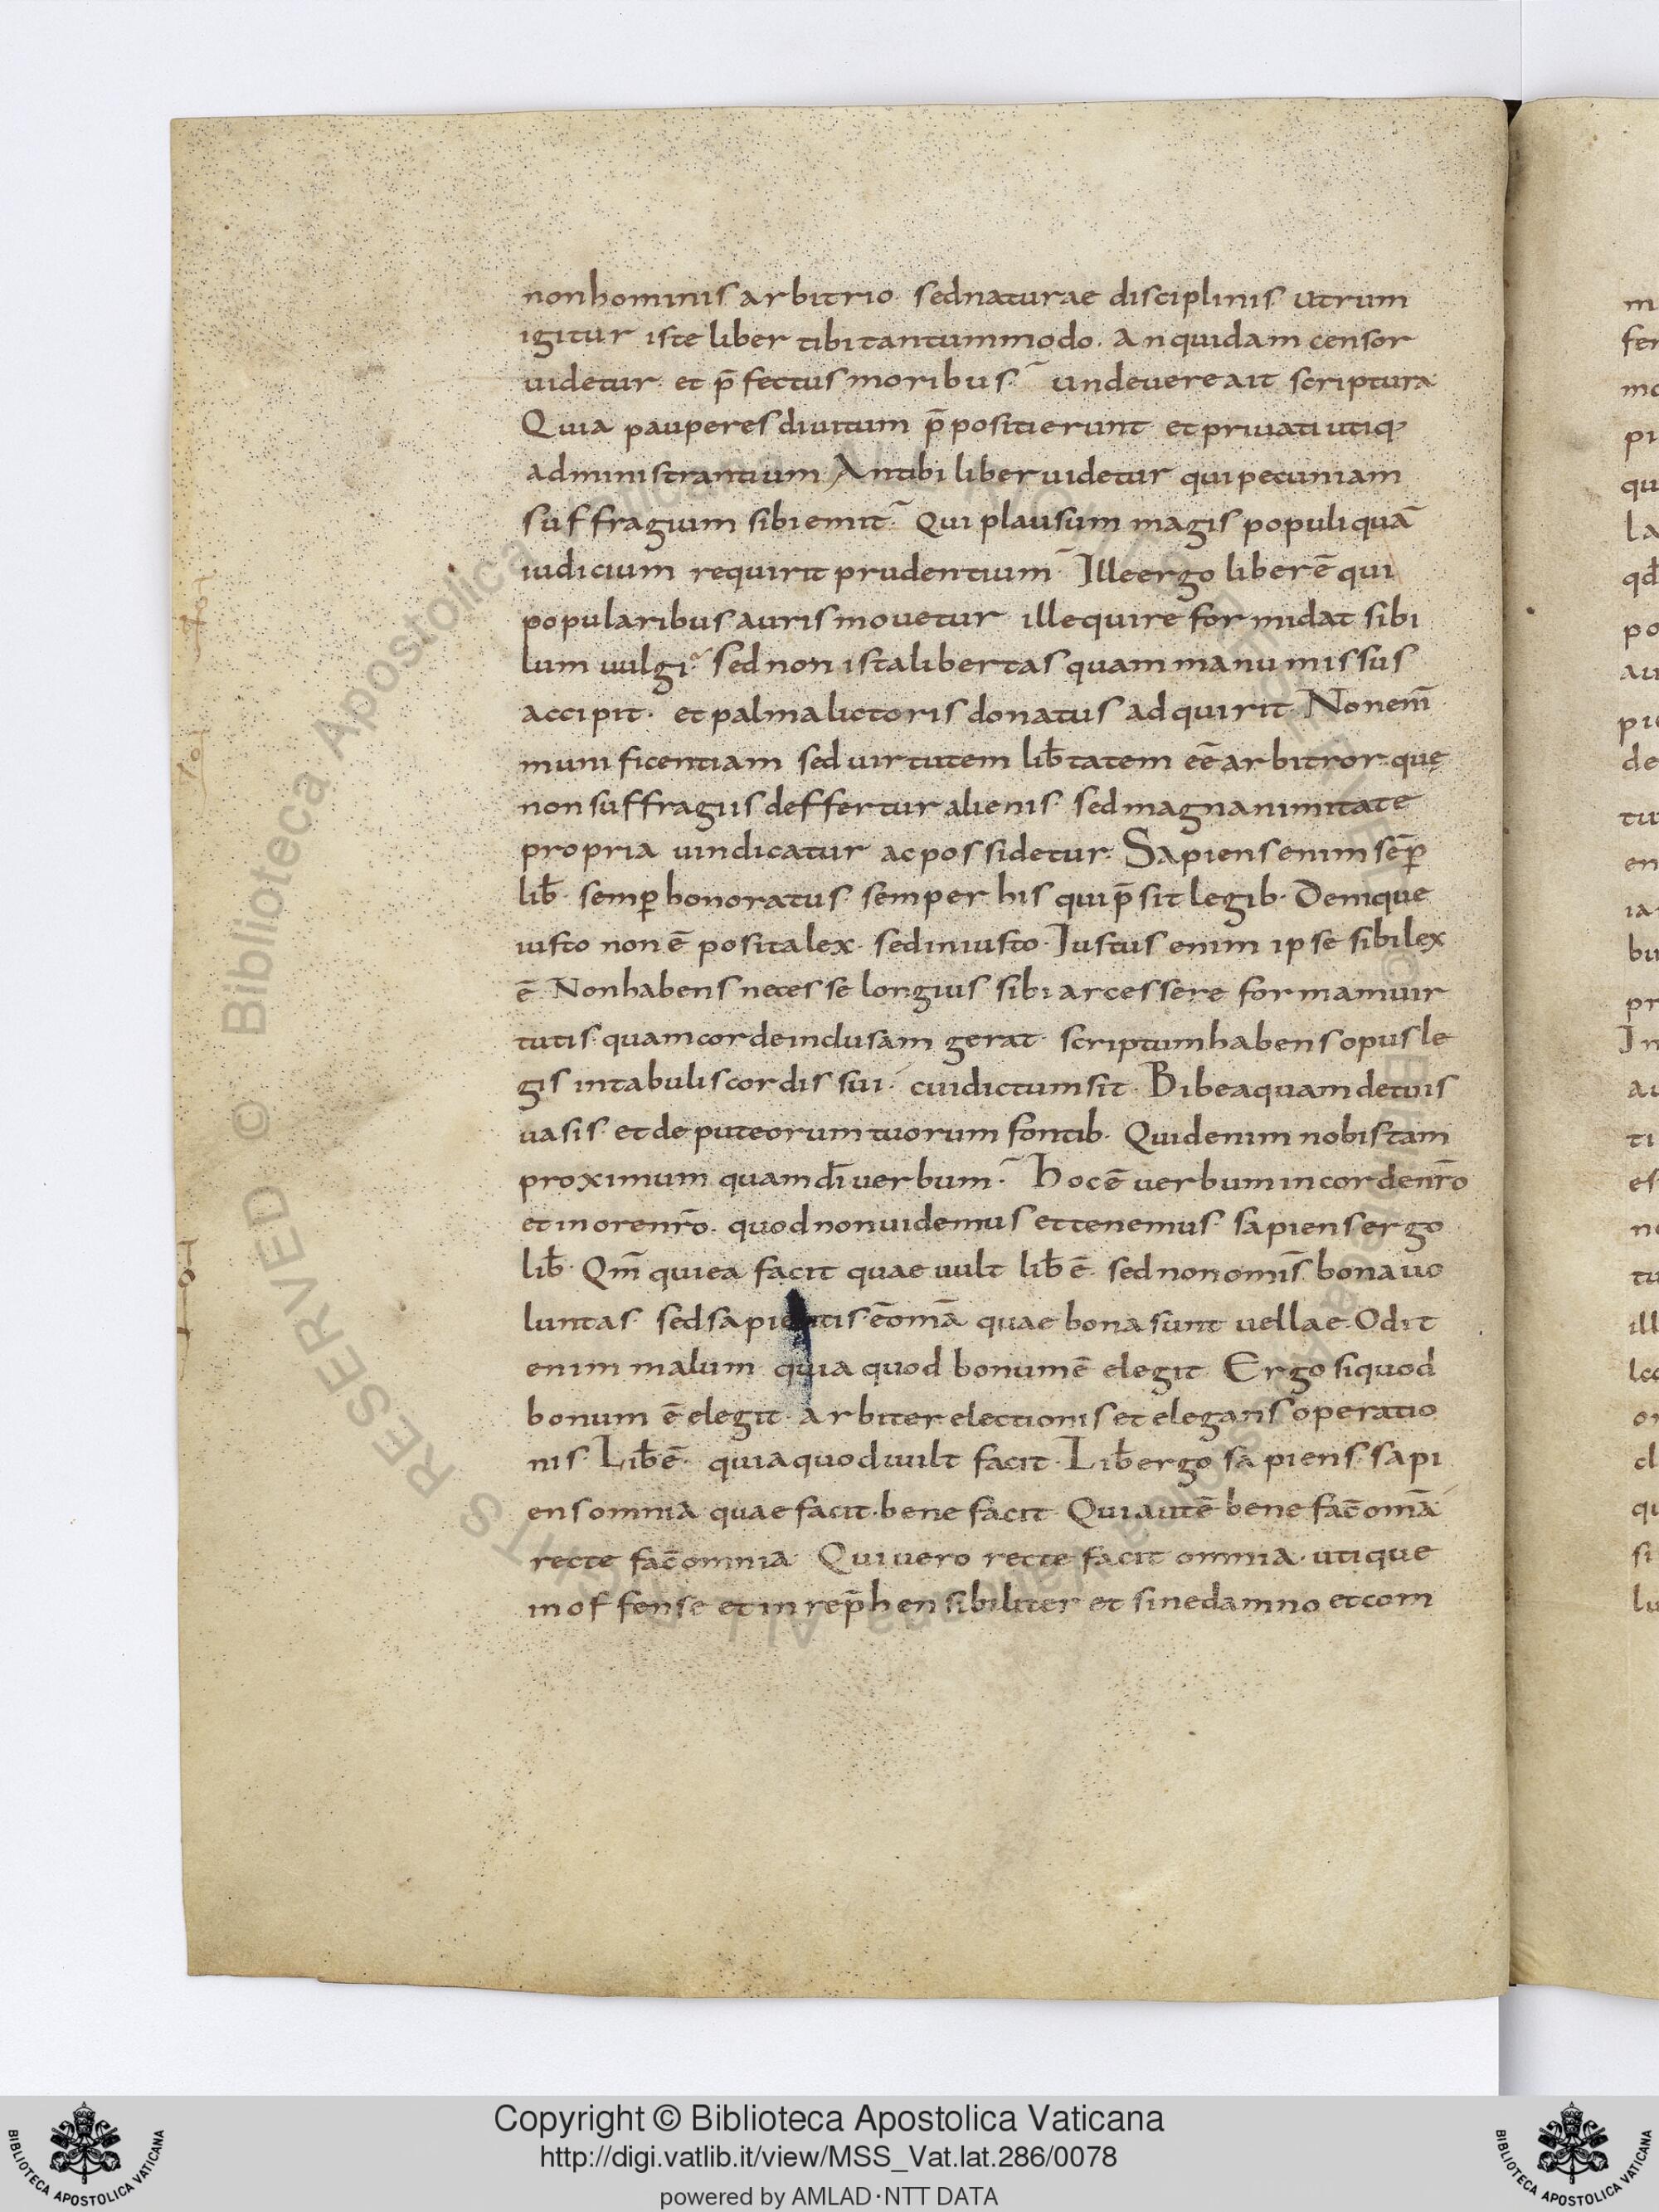 non hominis arbitrio. sed naturae disciplinis. utrum
igitur iste liber tibi tantummodo. An quidam censor
uidetur. et p̄fectus moribus. unde uere ait scriptura
Quia pauperes diuitum p̄positi erunt et priuati utiq;
administrantium. An tibi liber uidetur qui pecuniam
suffragium sibi emit. Qui plausum magis populi quā
iudicium requirit prudentium. Ille ergo liber ē qui
popularibus auris mouetur ille qui reformidat sibi
lum uulgi. sed non ista libertas quam manumissus
accipit. et palma lictoris donatus adquirit. Non enī
munificentiam sed uirtutem lib̄tatem eē arbitror. quę
non suffragiis deffertur alienis. sed magnanimitate
propria uindicatur ac possidetur. Sapiens enim sēp̄
lib̄. semp̄ honoratus. semper his qui p̄sit legib. Denique
iusto non ē posita lex. sed iniusto. Iustus enim ipse sibi lex
ē Non habens necesse longius sibi arcessere formam uir
tutis. quam corde inclusam gerat. scriptum habens opus le
gis in tabulis cordis sui. cui dictum sit. Bibe aquam de tuis
uasis. et de puteorum tuorum fontib. Quid enim nobis tam
proximum quam dī uerbum. Hoc ē uerbum in corde nr̄o
et in ore nr̄o. quod non uidemus et tenemus. sapiens ergo
lib̄. Qm̄ qui ea facit quae uult lib̄ ē. sed non omīs bona uo
luntas. sed sapientis ē omā quae bona sunt uellae. Odit
enim malum quia quod bonum ē elegit. Ergo si quod
bonum ē elegit. Arbiter electionis et elegans operatio
nis. Lib̄ ē. quia quod uult facit. Lib̄ ergo sapiens. sapi
ens omnia quae facit. bene facit. Qui autē bene fac̄ omā
recte fac̄ omnia. Qui uero recte facit omnia. utique
inoffense et inrep̄hensibiliter et sine damno et com
Copyright © Biblioteca Apostolica Vaticana
http://digi.vatlib.it/view/MSS_Vat.lat.286/0078
powered by AMLAD·NTT DATA
BIBLIOTECA APOSTOLICA VATICANA
BIBLIOTECA APOSTOLICA VATICANA